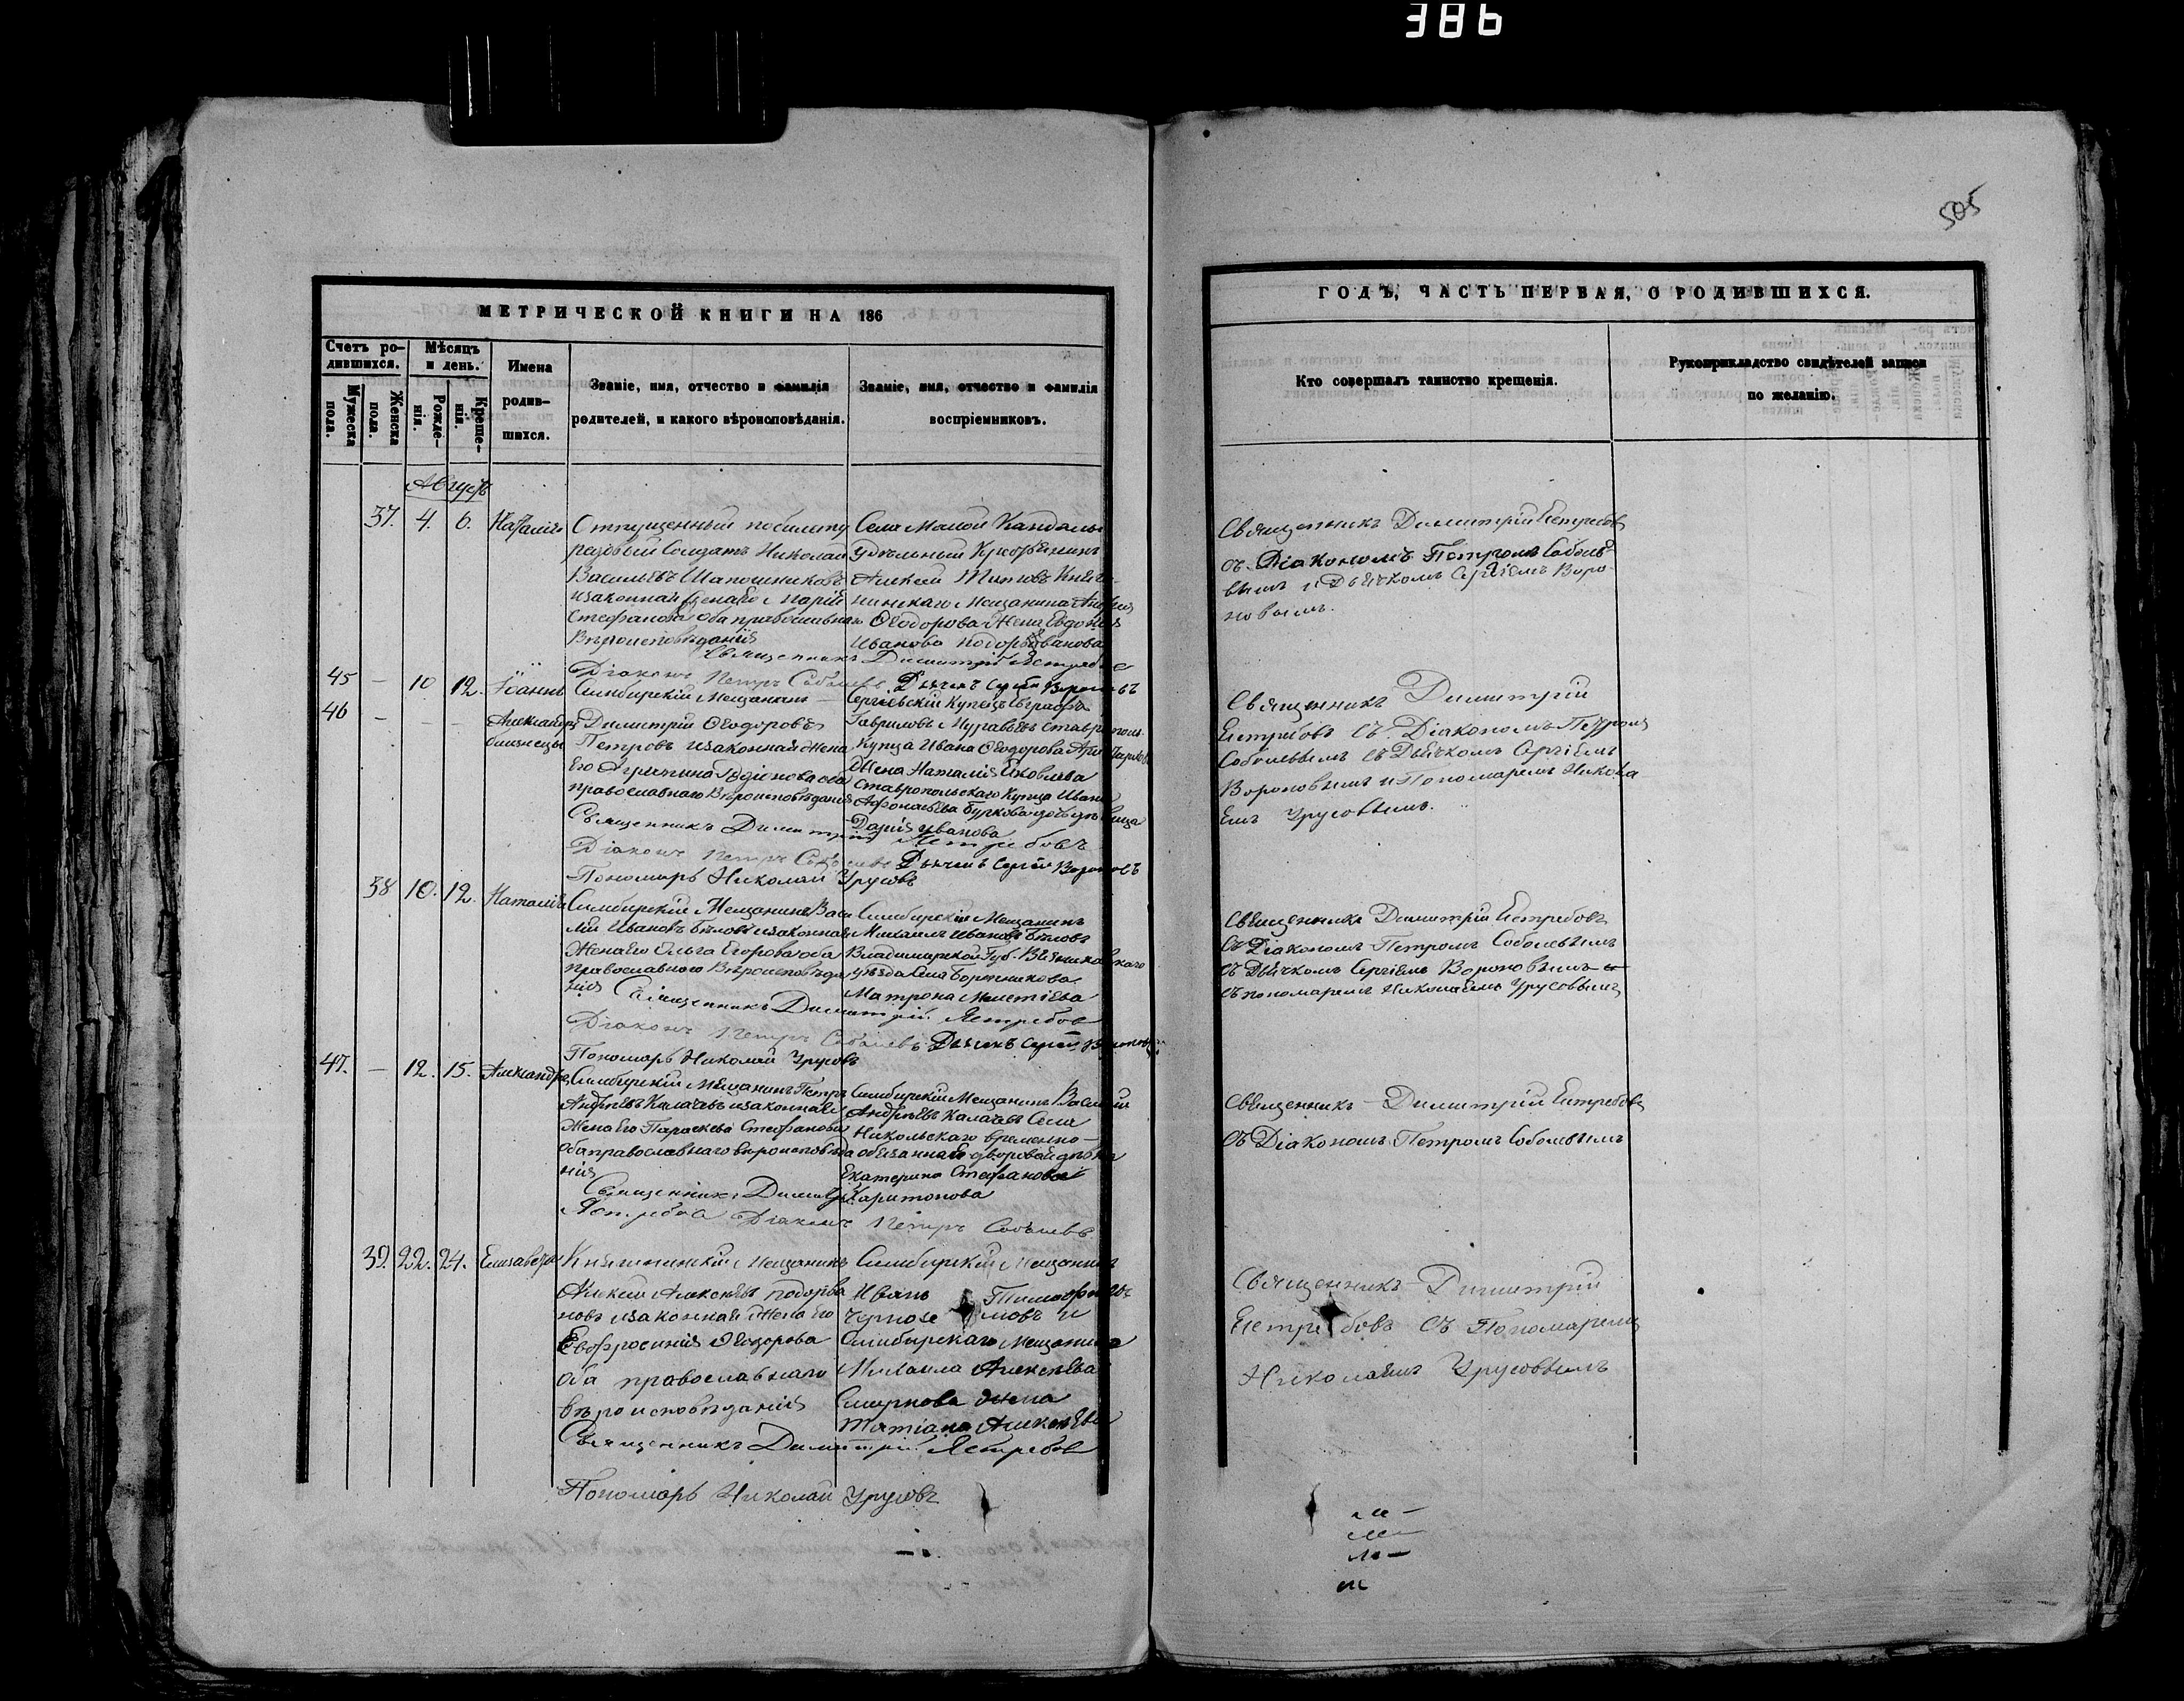 386
505
МЕТРИЧЕСКОЙ КНИГИ НА 186
Счетъ ро-
дившихся.
Мужеска
пола.
Женска
пола.
Мѣсяцъ
и день.
Рожде-
нія.
Креще-
нія.
Имена
родив-
шихся.
Званіе, имя, отчество и фамилія
родителей, и какого вѣроисповѣданія.
Званіе, имя, отчество и фамилія
воспріемниковъ.
Августъ
37. 4. 6. Наталія
Отпущенный по билету
рядовый Солдатъ Николай
Васильевъ Шапошниковъ
и законная жена его Марія
Стефанова оба православнаго
Вѣроисповѣданія
Села Малой Кандалы
удѣльный Крестьянинъ
Алексей Титовъ Княги-
нинскаго Мещанина Андрея
Ѳеодорова жена Евдокія
Иванова Подорванова
Священникъ Димитрій Ястребовъ
Діаконъ Петръ Соболевъ Дьячекъ Сергѣй Вороновъ
45 – 10 12. Іоаннъ
46 – – – Александръ
близнецы
Симбирскій Мещанинъ
Димитрій Ѳеодоровъ
Петровъ и законная жена
Его Агриппина Родіонова оба
православнаго Вѣроисповѣданія
Сергіевскій Купецъ Евграфъ
Гавриловъ Муравьевъ Ставропол.
Купца Ивана Ѳеодорова
Жена Наталія Яковлева
Ставропольскаго Купца Ивана
Афонасьева Буркова дочь дѣвица
Дарія Иванова
Священникъ Димитрій Ястребовъ
Діаконъ Петръ Соболевъ Дьячекъ Сергѣй Вороновъ
Пономарь Николай Урусовъ
38 10. 12. Наталія
Симбирскій Мещанинъ Васи
лій Ивановъ Бѣловъ и законная
Жена Его Ольга Егорова оба
Православнаго Вѣроисповѣда
нія
Симбирскій Мещанинъ
Михаилъ Ивановъ Бѣловъ
Владимирской Губ. Вязниковскаго
уѣзда Села
Матрона
Священникъ Димитрій Ястребовъ
Діаконъ Петръ Соболевъ Дьячекъ Сергѣй Вороновъ
Пономарь Николай Урусовъ
47. – 12. 15. Александръ
Симбирскій Мещанинъ Петръ
Андрѣевъ Калачевъ и законная
Жена Его Параскева Стефанова
оба православнаго вѣроисповѣда
нія
Симбирскій Мещанинъ Василій
Андрѣевъ Калачевъ Села
Никольскаго временно-
обязаннаго дворовая дѣвка
Екатерина Стефанова
Харитонова
Священникъ Димитрій
Ястребовъ Діаконъ Петръ Соболевъ
39. 22. 24. Елизавета
Княгининскій Мещанинъ
Алексей Алексѣевъ Подорва
новъ и законная Жена Его
Евфросинія Ѳеодорова
Оба православнаго
вѣроисповѣданія
Симбирскій Мещанинъ
Иванъ Тимофѣевъ
и
Симбирскаго Мещанина
Михаила Алексѣева
Смирнова жена
Татіана Алексѣева
Священникъ Димитрій Ястребовъ
Пономарь Николай Урусовъ
ГОДЪ, ЧАСТЬ ПЕРВАЯ, О РОДИВШИХСЯ.
Кто совершалъ таинство крещенія.
Рукоприкладство свидѣтелей записи
по желанію.
Священникъ Димитрій Ястребовъ
съ Діакономъ Петромъ Соболе-
вымъ и Дьячкомъ Сергіемъ Воро-
новымъ.
Священникъ Димитрій
Ястребовъ Съ Діакономъ Петромъ
Соболевымъ съ Дьячкомъ Сергіемъ
Вороновымъ и Пономаремъ Никола
емъ Урусовымъ.
Священникъ Димитрій Ястребовъ
съ Діакономъ Петромъ Соболевымъ
съ Дьячкомъ Сергіемъ Вороновымъ и
съ пономаремъ Николаемъ Урусовымъ
Священникъ Димитрій Ястребовъ
съ Діакономъ Петромъ Соболевымъ
Священникъ Димитрій
Ястребовъ съ Пономаремъ
Николаемъ Урусовымъ